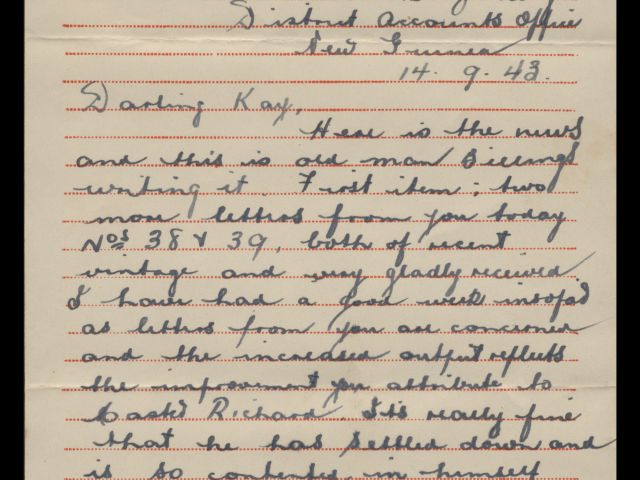 District Accounts Office
New Guinea
14. 9. 43.
Darling Kay,
Here is the news
and this is old man Billings
writing it. First item: two
more letters from you today
Nos 38 & 39, both of recent
vintage and very gladly received.
I have had a good week insofar
as letters from you are concerned
and the increased output reflects
the improvement you attribute to
Richard. It's really fine
that he has settled down and
is so contented in himself